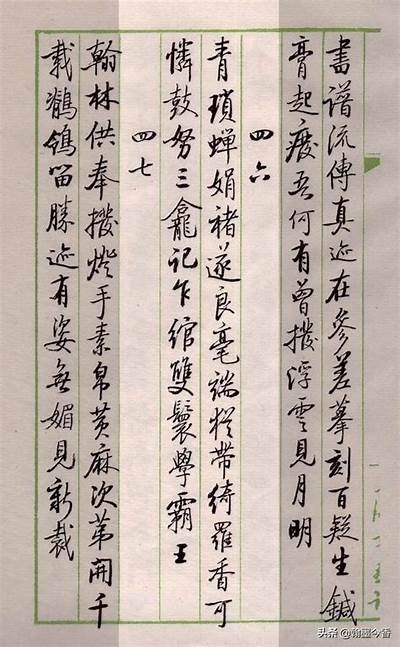 書譜流傳真迹在參差摹刻百疑生鍼
膏起廢吾何有曾撥浮雲見月明
四六
青瑣蝉娟褚遂良毫端猶帶綺羅香可
憐鼓努三龕記乍綰雙鬟學霸王
四七
翰林供奉撥燈手素帛黄麻次第開千
載鶺鴒留勝迹有姿無媚見新裁
头条 @翰墨今香